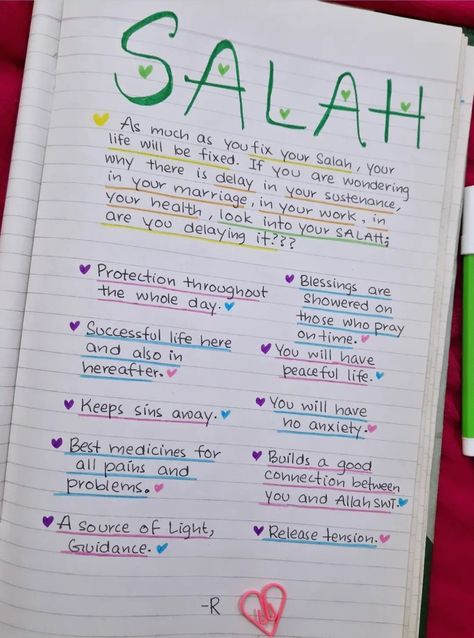 SALAH
As much as you fix your Salah, your
life will be fixed. If you are wondering
why there is delay in your sustenance,
in your marriage, in your work, in
your health, look into your SALAH;
are you delaying it???
Protection throughout
the whole day.
Successful life here
and also in
hereafter.
Keeps sins away.
Best medicines for
all pains and
problems.
A source of Light,
Guidance.
Blessings are
showered on
those who pray
on time.
You will have
peaceful life.
You will have
no anxiety.
Builds a good
connection between
you and Allah SWT.
Release tension.
-R